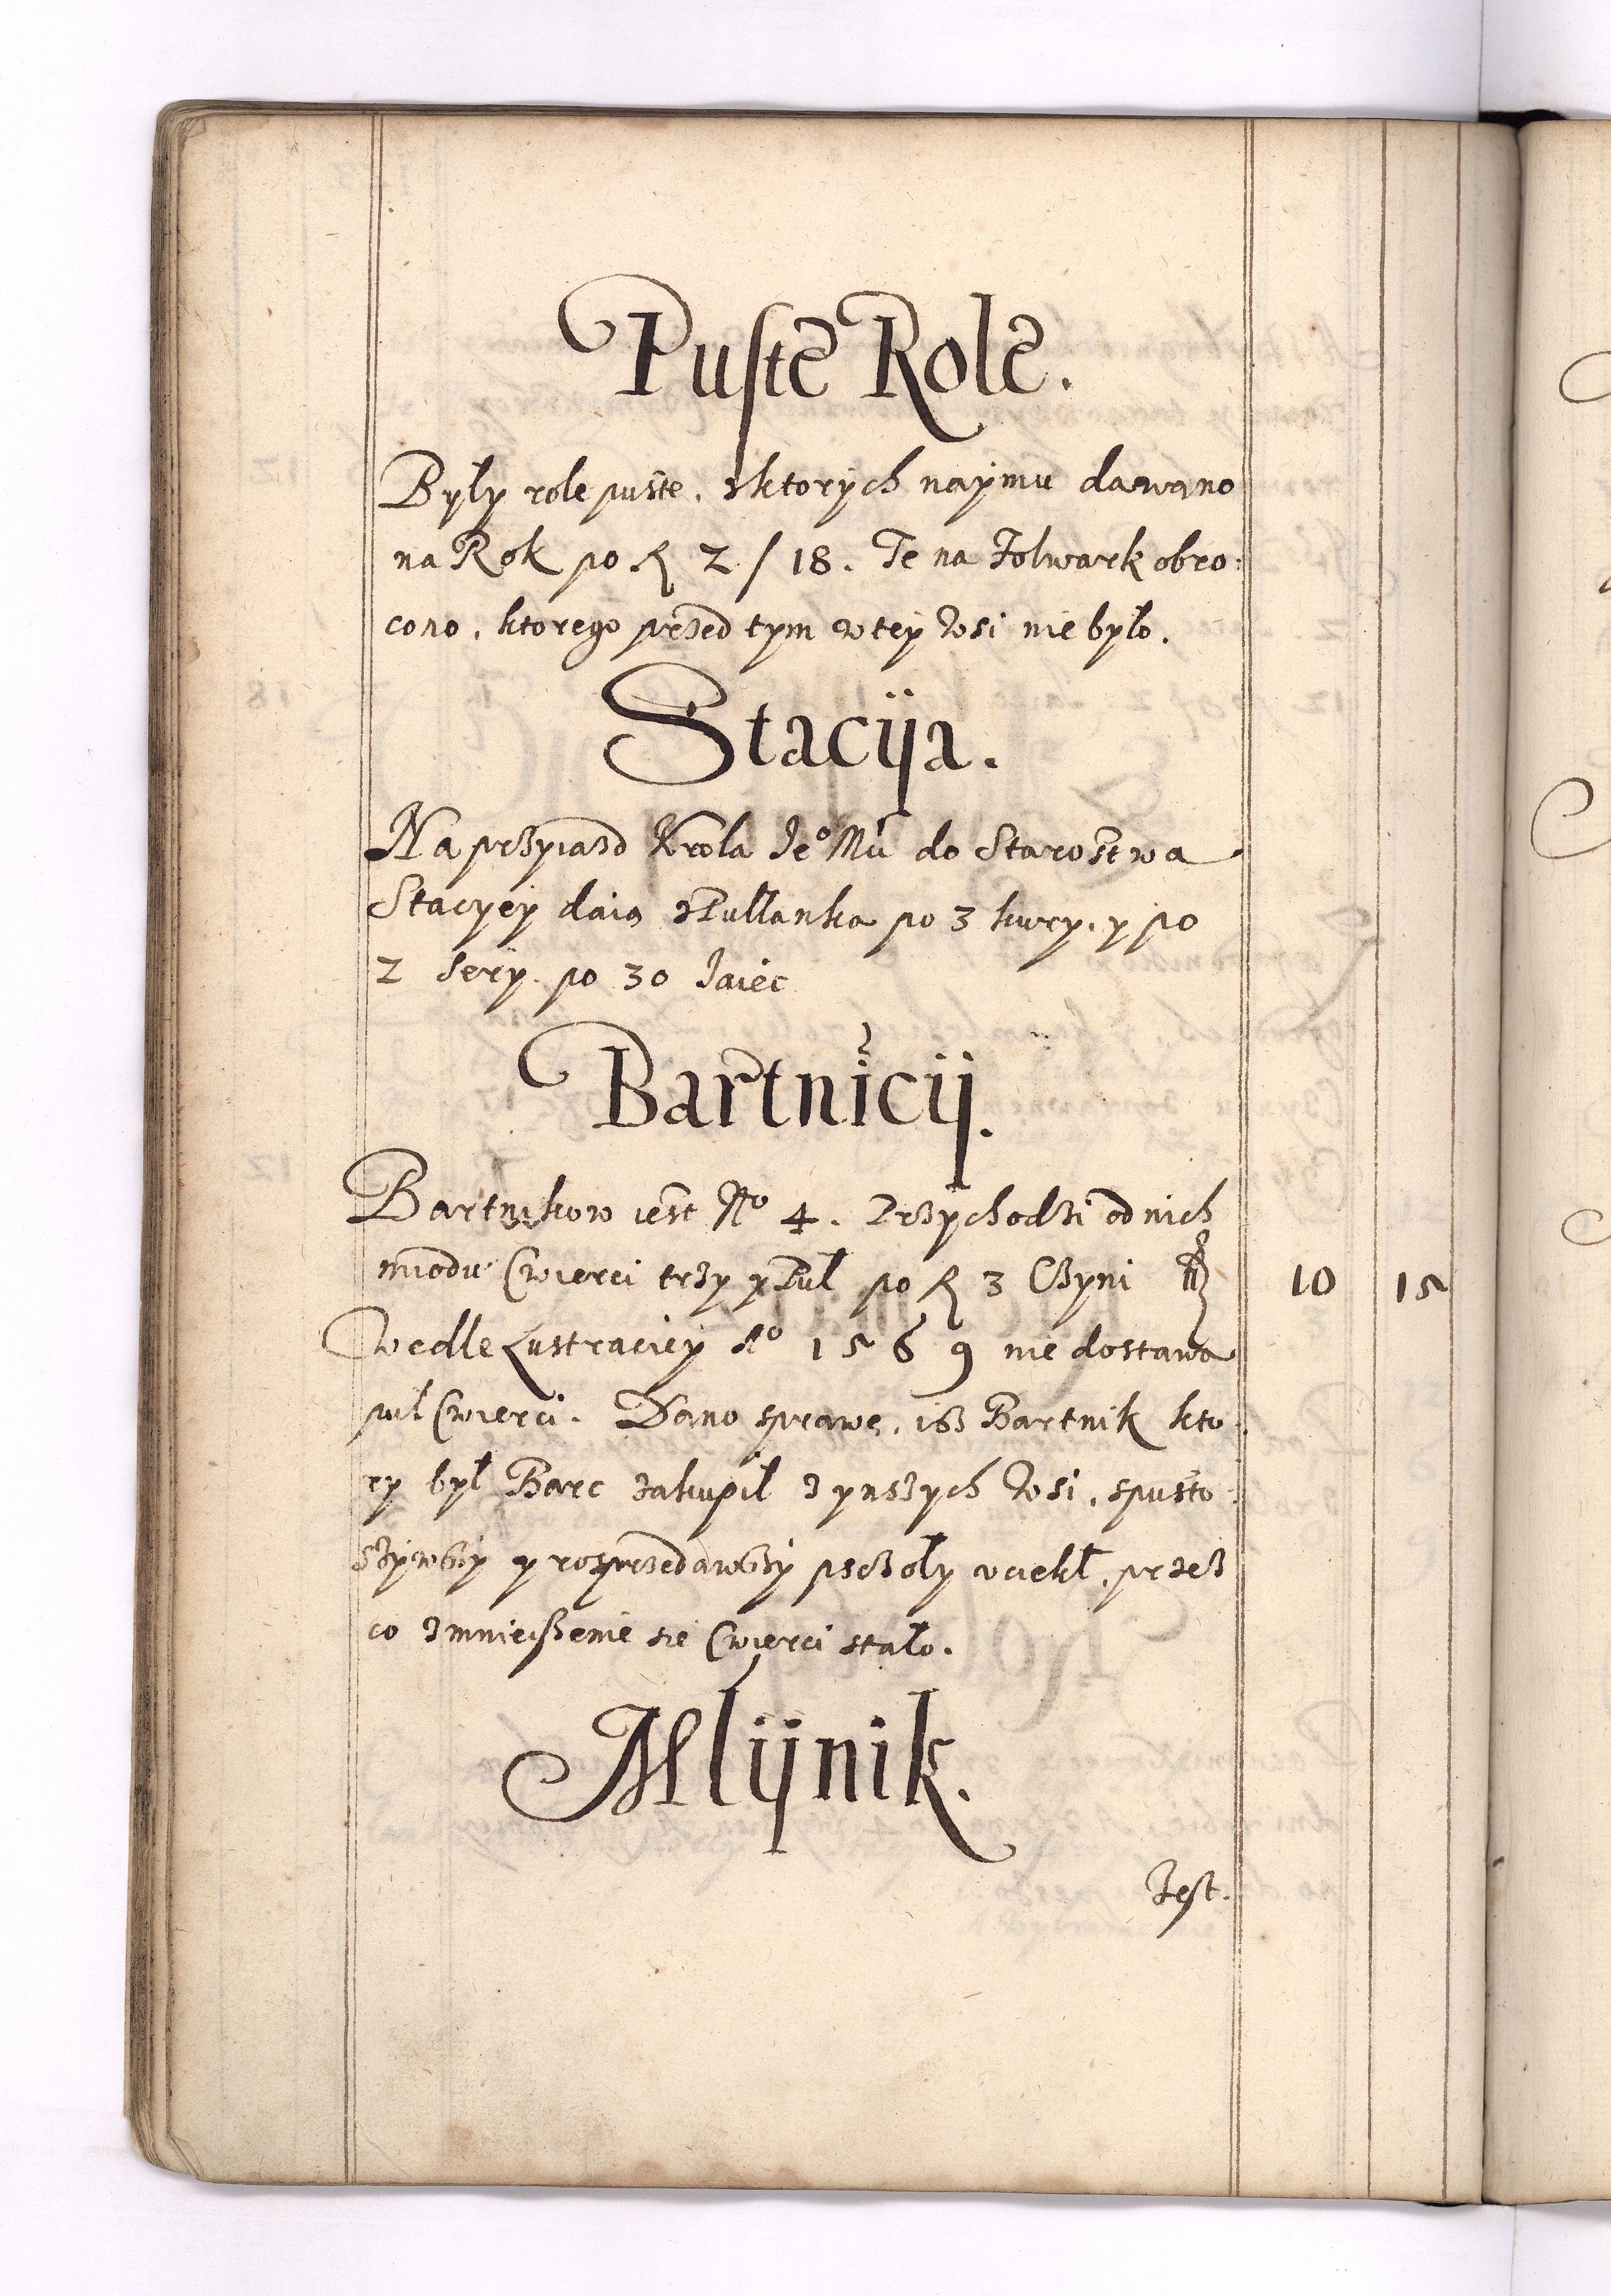 Puste Role.
Były role puste, z ktorych naymu dawano
na Rok po fl 2/18. Te na Folwark obro:
cono, ktorego przed tym w tey Wsi nie było.
Stacija.
Na przyiazd Krola Je° Mći do Starostwa
Stacyey daią z Pullanka po 3 kury, y po
2 Sery. po 30 Jaiec
Bartnicij.
Bartnikow iest N° 4. Przychodzi od nich
miodu Cwierci trzy y Puł po fl 3 Czyni fl 10 15
Wedle Lustraciey A° 1569 nie dostawa
puł Cwierci. Dano sprawę, isz Bartnik kto:
ry był Barc zakupił z ynszych Wsi, spusto:
szywszy y rozprzedawszy psczoły uciekł, przez
co zmnieiszenie sie Cwierci stało.
Mlijnik.
Jest.